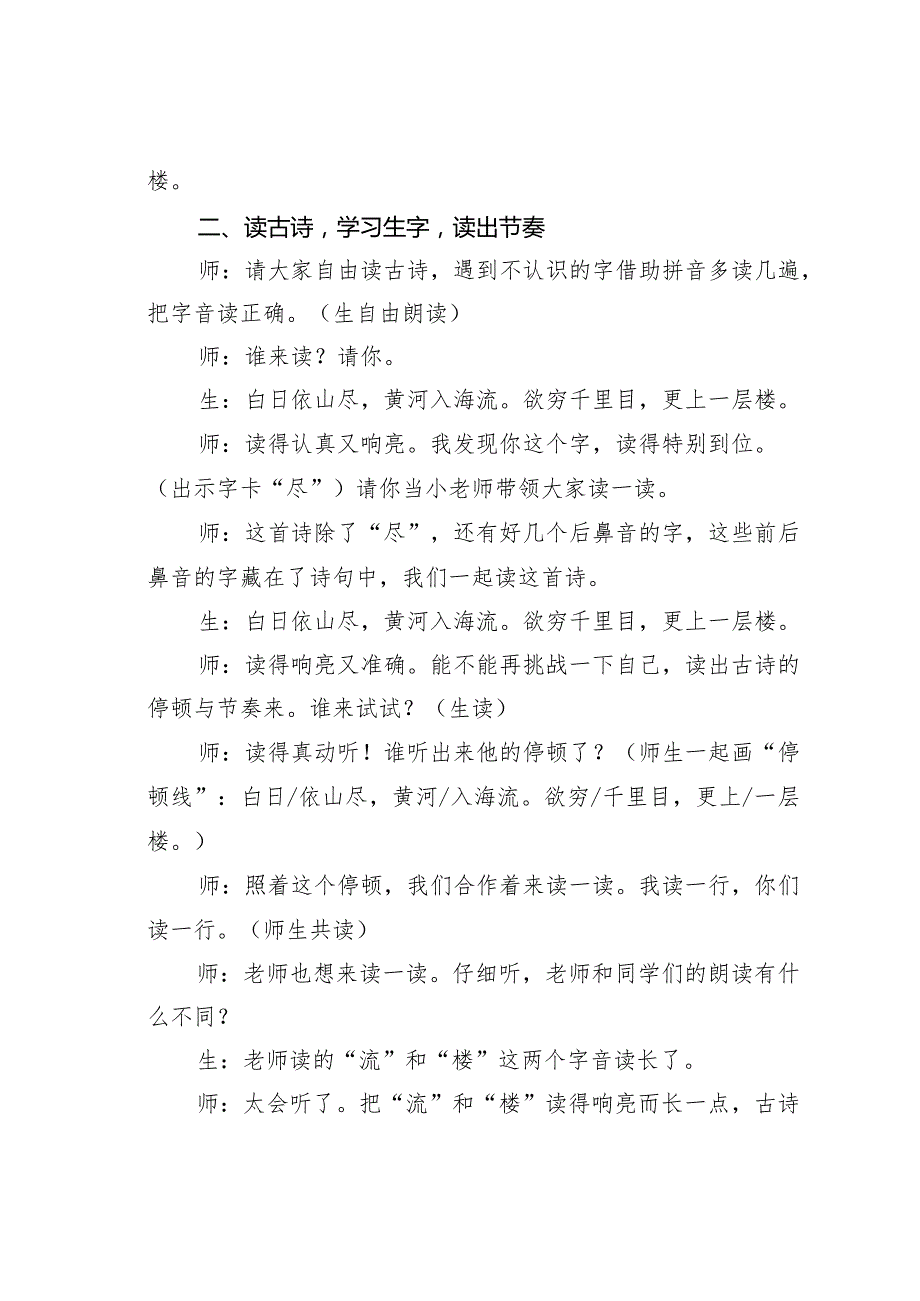 楼。
二、读古诗，学习生字，读出节奏
师：请大家自由读古诗，遇到不认识的字借助拼音多读几遍，
把字音读正确。（生自由朗读）
师：谁来读？请你。
生：白日依山尽，黄河入海流。欲穷千里目，更上一层楼。
师：读得认真又响亮。我发现你这个字，读得特别到位。
（出示字卡“尽”）请你当小老师带领大家读一读。
师：这首诗除了“尽”，还有好几个后鼻音的字，这些前后
鼻音的字藏在了诗句中，我们一起读这首诗。
生：白日依山尽，黄河入海流。欲穷千里目，更上一层楼。
师：读得响亮又准确。能不能再挑战一下自己，读出古诗的
停顿与节奏来。谁来试试？（生读）
师：读得真动听！谁听出来他的停顿了？（师生一起画“停
顿线”：白日/依山尽，黄河/入海流。欲穷/千里目，更上/一层
楼。）
师：照着这个停顿，我们合作着来读一读。我读一行，你们
读一行。（师生共读）
师：老师也想来读一读。仔细听，老师和同学们的朗读有什
么不同？
生：老师读的“流”和“楼”这两个字音读长了。
师：太会听了。把“流”和“楼”读得响亮而长一点，古诗